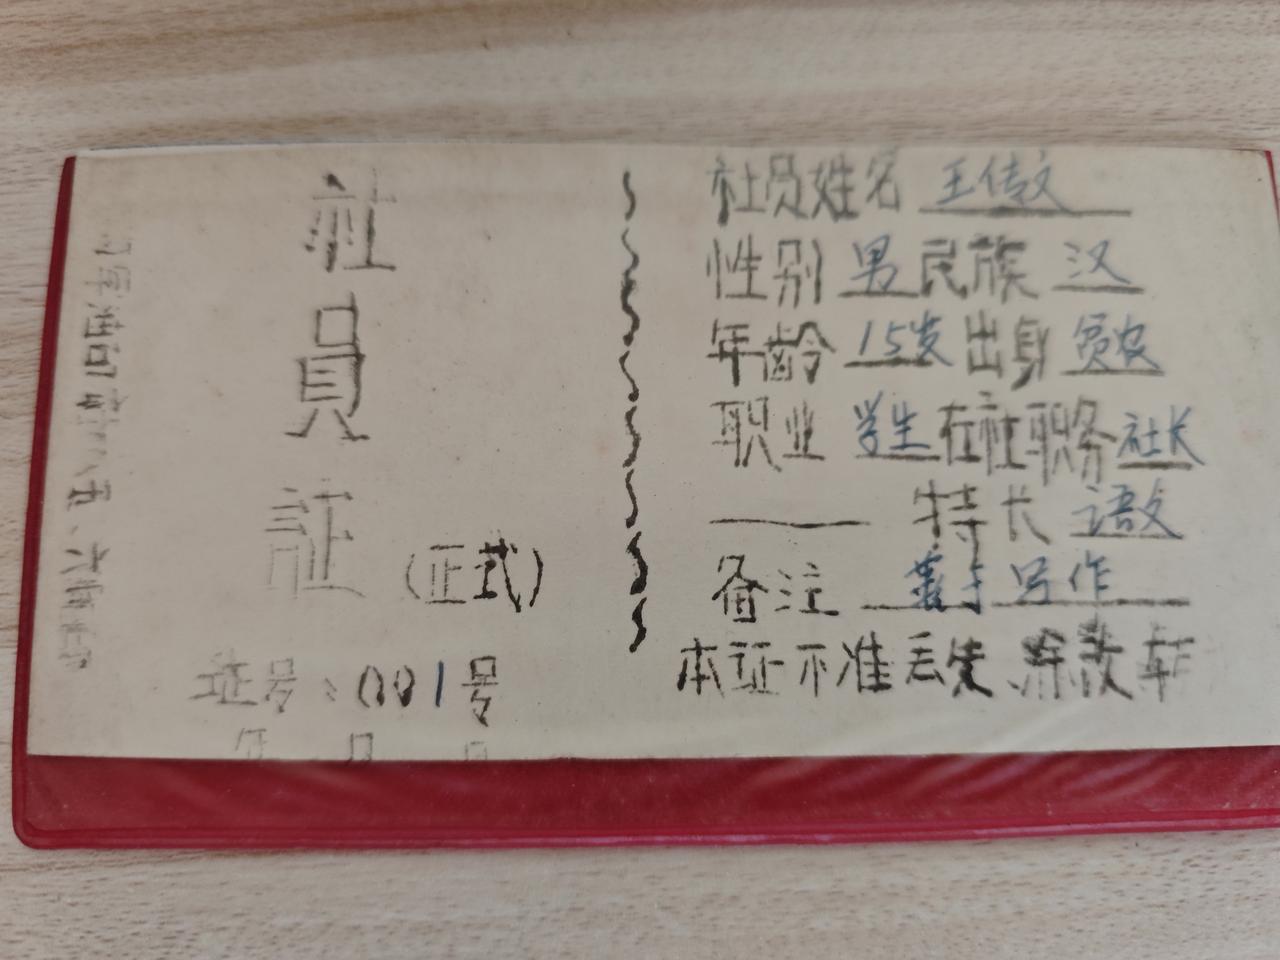 社
員
証
(正式)
证号:001号
年 月 日
社员姓名 王传文
性别 男 民族 汉
年龄 15岁 出身 贫农
职业 学生 在社职务 社长
特长 语文
备注 善于写作
本证不准丢失 涂改 转